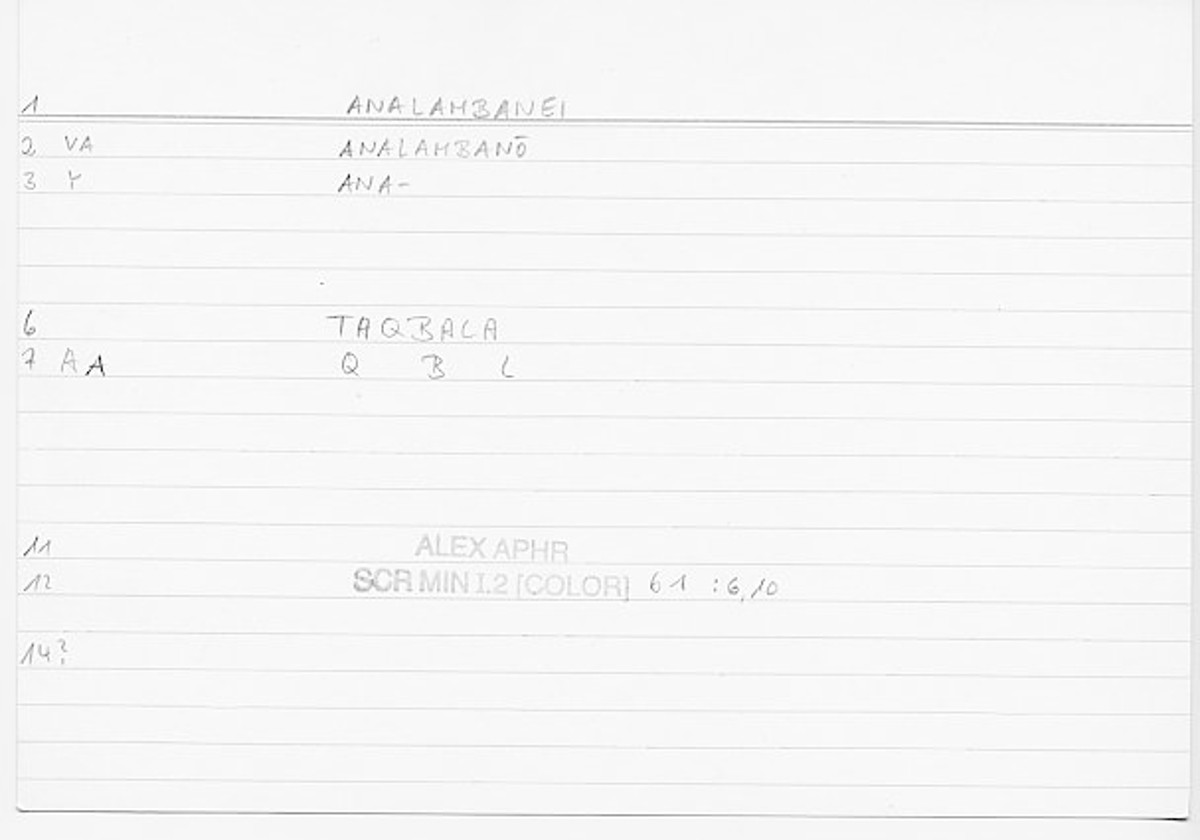 1 ANALAMBANEI
2 VA ANALAMBANŌ
3 Y ANA-
6 TAQBALA
7 A A Q B L
11 ALEX APHR
12 SCR MIN I.2 [COLOR] 61 :6,10
14?